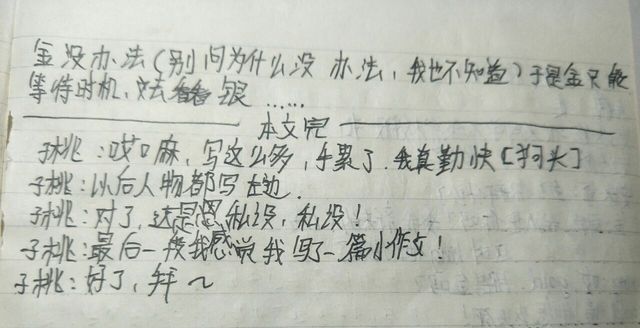 金没办法(别问为什么没办法,我也不知道)于是金只能
等待时机,去看看银……
本文完
子桃:哎口麻,写这么多,手累了.我真勤快[狗头]
子桃:以后人物都写左边.
子桃:对了,这是私设,私设!
子桃:最后一段我感觉我写了一篇小作文!
子桃:好了,拜~